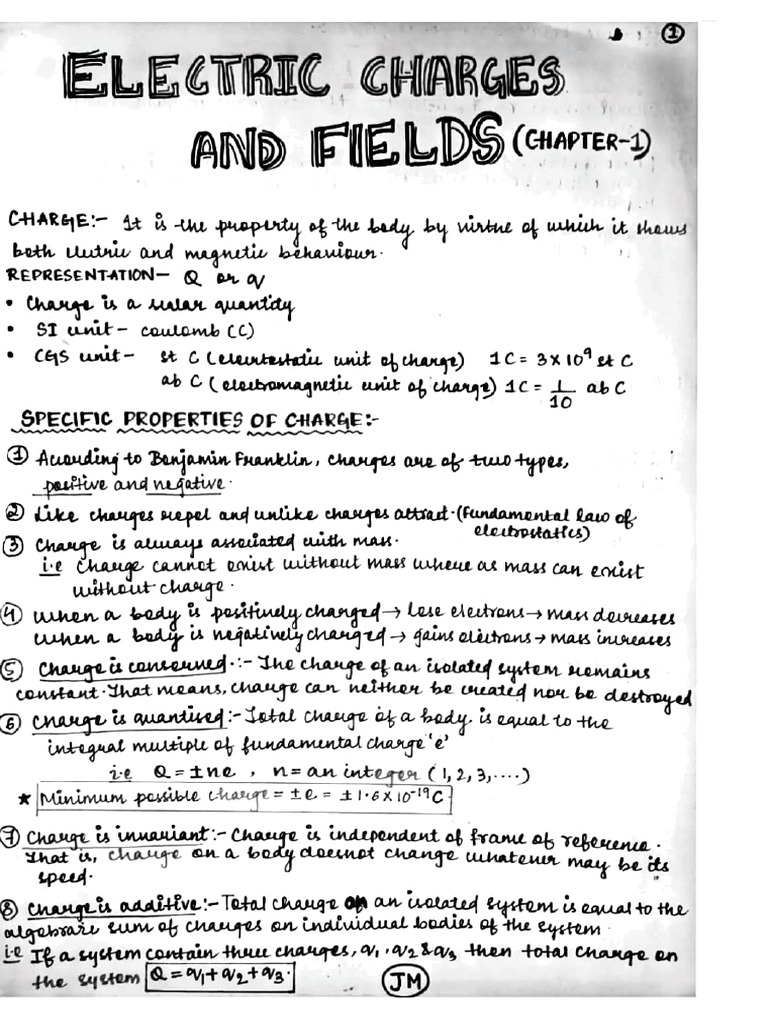 ①
ELECTRIC CHARGES
AND FIELDS (CHAPTER-1)
CHARGE:- It is the property of the body by virtue of which it shows
both electric and magnetic behaviour.
REPRESENTATION- Q or q
• Charge is a scalar quantity
• SI unit - coulomb (C)
• CGS unit - st C (electrostatic unit of charge) 1C = 3×10⁹ st C
ab C (electromagnetic unit of charge) 1C = 1/10 ab C
SPECIFIC PROPERTIES OF CHARGE:-
① According to Benjamin Franklin, charges are of two types,
positive and negative.
② Like charges repel and unlike charges attract. (Fundamental law of
electrostatics)
③ Charge is always associated with mass.
i.e Charge cannot exist without mass where as mass can exist
without charge.
④ When a body is positively charged → lose electrons → mass decreases
When a body is negatively charged → gains electrons → mass increases
⑤ Charge is conserved.:- The charge of an isolated system remains
constant. That means, charge can neither be created nor be destroyed
⑥ Charge is quantised:- Total charge of a body is equal to the
integral multiple of fundamental charge 'e'
i.e Q = ±ne , n = an integer (1, 2, 3, ....)
★ Minimum possible charge = ±e = ±1.6×10⁻¹⁹C
⑦ Charge is invariant:- Charge is independent of frame of reference.
That is, charge on a body doesnot change whatever may be its
speed.
⑧ Charge is additive:- Total charge on an isolated system is equal to the
algebraic sum of charges on individual bodies of the system.
i.e If a system contain three charges, q₁, q₂ & q₃ then total charge on
the system Q = q₁ + q₂ + q₃.
JM